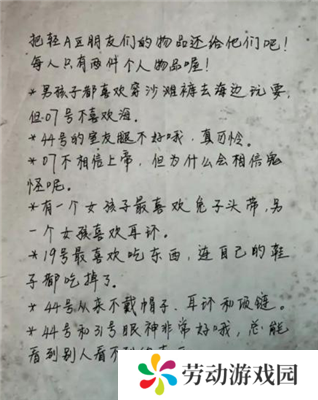 把轻A区朋友们的物品还给他们吧！
每人只有两件个人物品喔！
*男孩子都喜欢穿沙滩裤去海边玩耍，
但07号不喜欢海。
*44号的室友腿不好哦，真可怜。
*07不相信上帝，但为什么会相信鬼
怪呢。
*有一个女孩子最喜欢兔子头带，另
一个女孩喜欢耳环。
*19号最喜欢吃东西，连自己的鞋
子都吃掉了。
*44号从来不戴帽子、耳环和项链。
*44号和31号眼神非常好哦，总能
看到别人看不到的东西
劳动游戏园